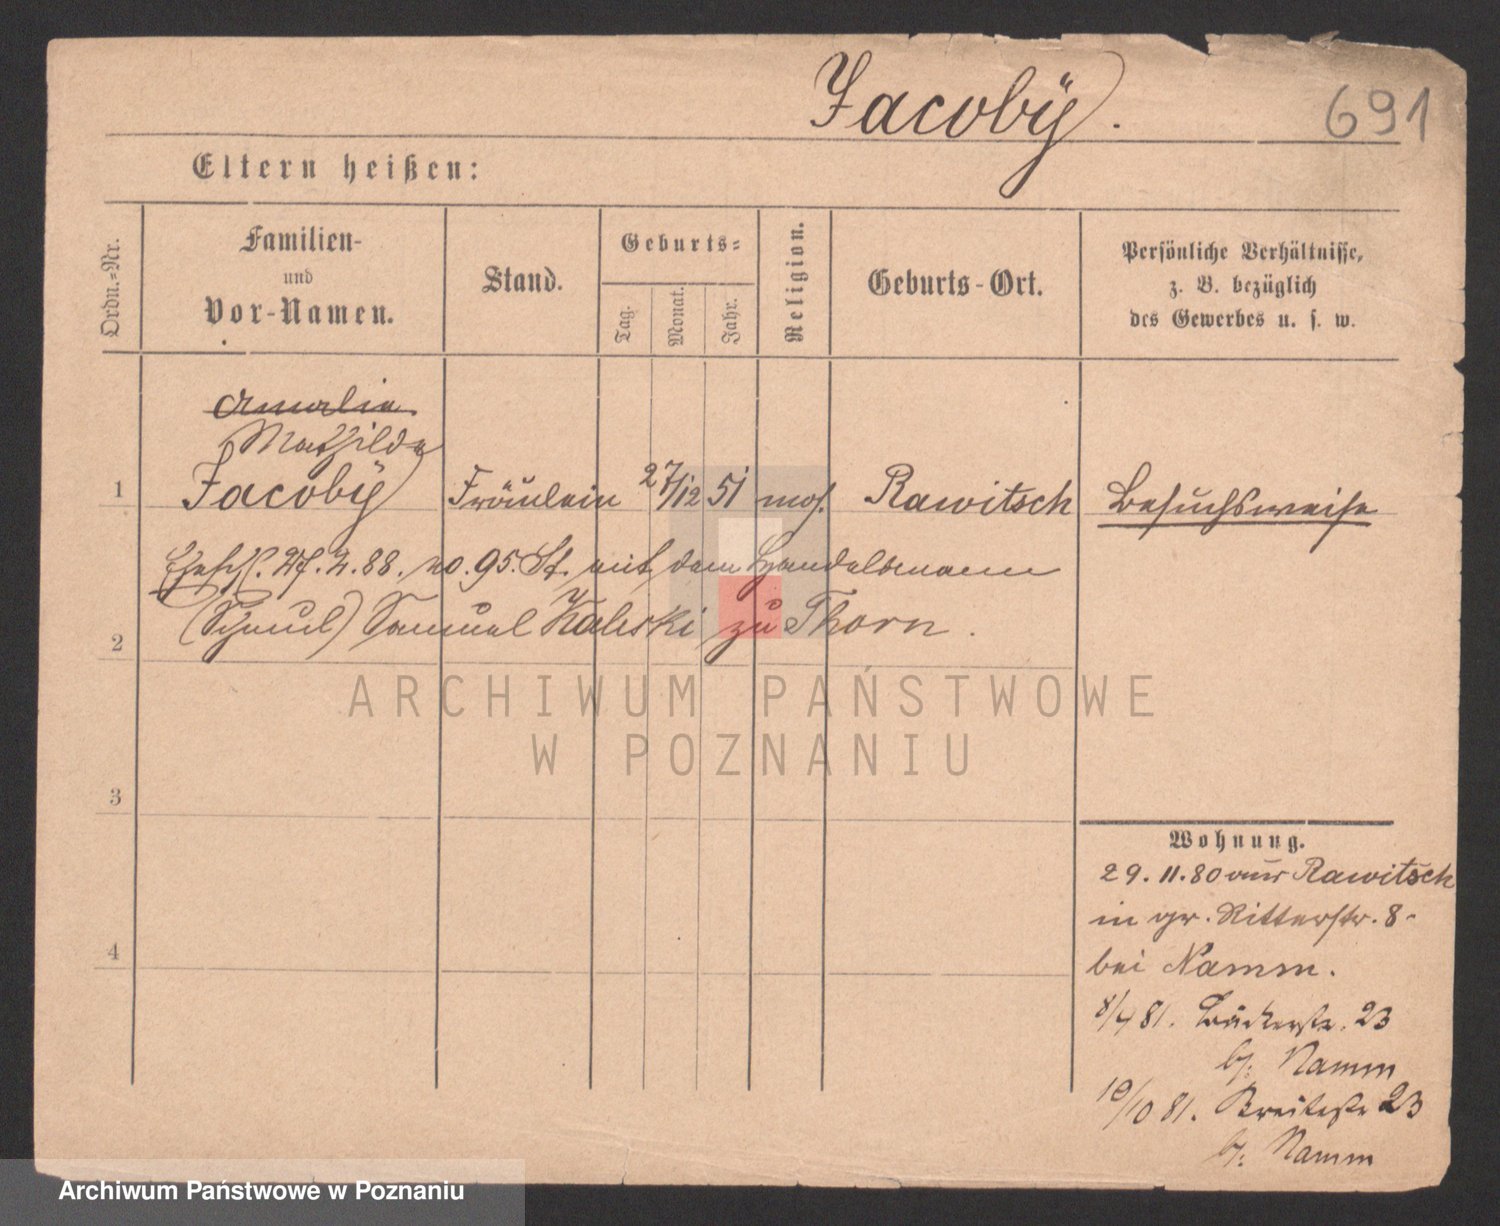 Jacoby.
691
Eltern heißen:
Ordn.-Nr.
Familien-
und
Vor-Namen.
Stand.
Geburts-
Tag.
Monat.
Jahr.
Religion.
Geburts-Ort.
Persönliche Verhältnisse,
z. B. bezüglich
des Gewerbes u. s. w.
Amalie
Mathilde
1 Jacoby Fräulein 27/12 51 mos. Rawitsch Besuchsweise
Eheschl. 27.2.88. no. 95. St. mit dem Handelsmann
2 (Schmul) Samuel Kaliski zu Thorn.
ARCHIWUM PAŃSTWOWE
W POZNANIU
3
4
Wohnung.
29.11.80 aus Rawitsch
in gr. Ritterstr. 8.
bei Namm.
8/4 81. Bäckerstr. 23
b/: Namm
10/10 81. Breitestr 23
b/: Namm
Archiwum Państwowe w Poznaniu